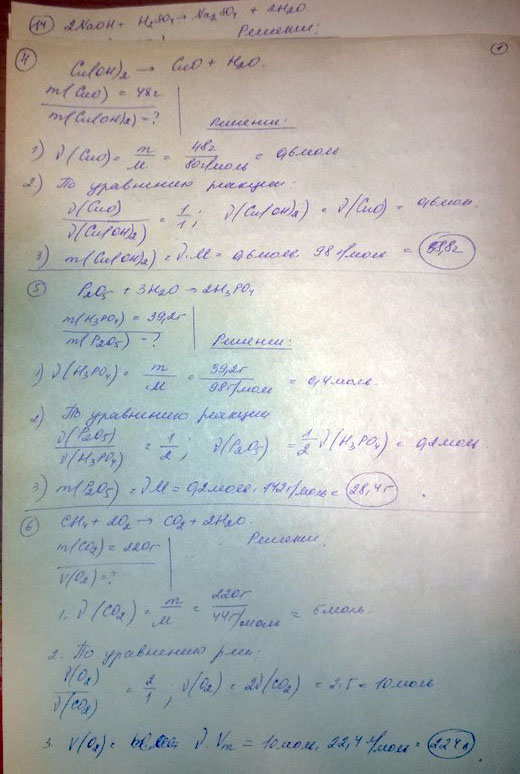 14 2NaOH + H2SO4 → Na2SO4 + 2H2O.
Решение:
4
Cu(OH)2 → CuO + H2O.
m(CuO) = 48г
m(Cu(OH)2) = ?
Решение:
1) ν(CuO) = m/M = 48г/80г/моль = 0,6моль
2) По уравнению реакции:
ν(CuO)/ν(Cu(OH)2) = 1/1; ν(Cu(OH)2) = ν(CuO) = 0,6моль.
3) m(Cu(OH)2) = ν·M = 0,6моль · 98 г/моль = 58,8г
5 P2O5 + 3H2O → 2H3PO4
m(H3PO4) = 39,2г
m(P2O5) = ?
Решение:
1) ν(H3PO4) = m/M = 39,2г/98г/моль = 0,4моль.
2) По уравнению реакции
ν(P2O5)/ν(H3PO4) = 1/2; ν(P2O5) = 1/2 ν(H3PO4) = 0,2моль
3) m(P2O5) = νM = 0,2моль · 142г/моль = 28,4г
6 CH4 + 2O2 → CO2 + 2H2O.
m(CO2) = 220г
V(O2) = ?
Решение.
1. ν(CO2) = m/M = 220г/44г/моль = 5моль.
2. По уравнению р-ии:
ν(O2)/ν(CO2) = 2/1; ν(O2) = 2ν(CO2) = 2·5 = 10моль.
3. V(O2) = ν·Vm = 10моль · 22,4 л/моль = 224л